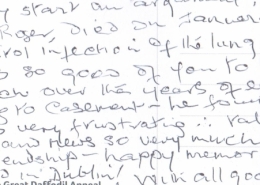 start an argument,
Roger, died on January
infection of the lung
so good of you to
over the years of
to Casement - he found
very frustrating :
and news so very much
friendship - happy memor
in Dublin! With all goo
Great Daffodil Appeal